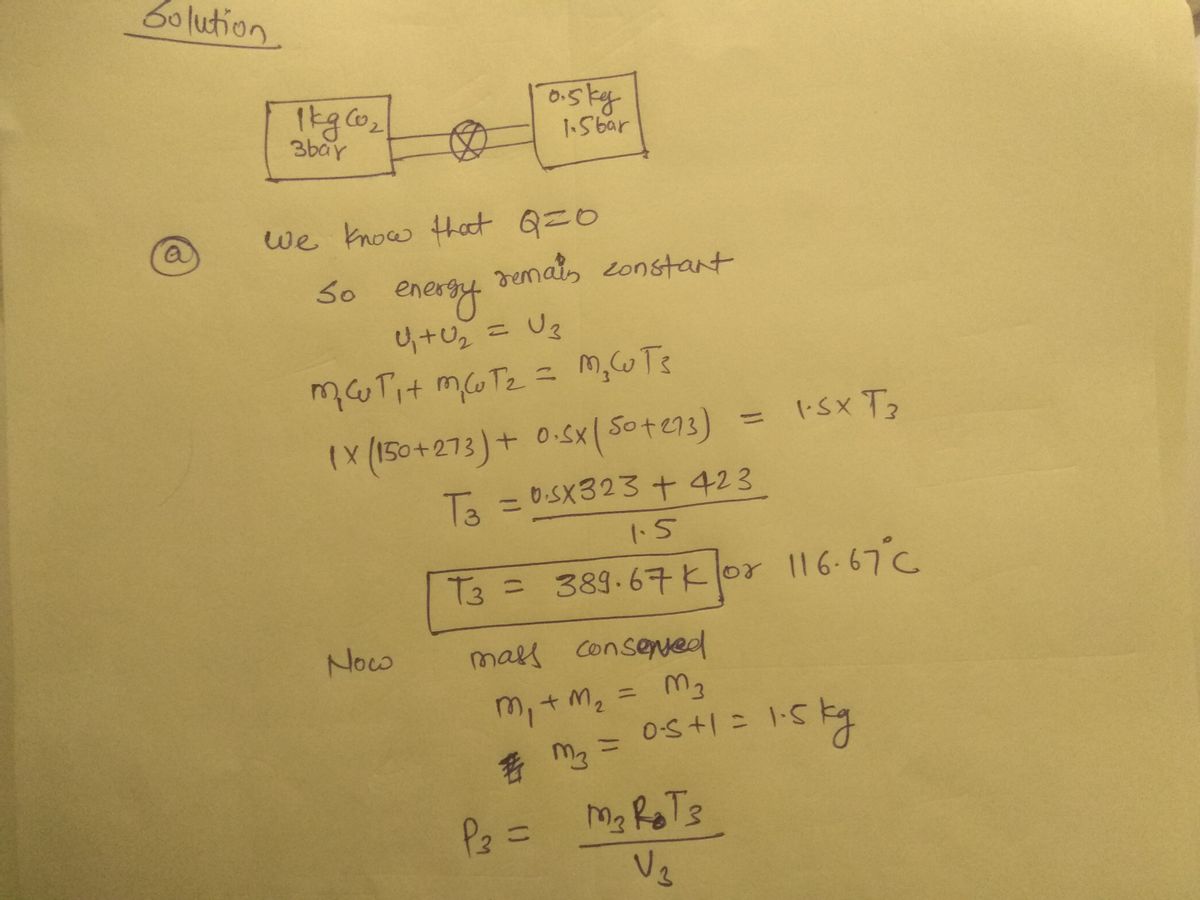 Solution
1kg CO2
3bar
0.5kg
1.5bar
(a) We know that Q=0
So energy remain constant
U1+U2 = U3
m1CvT1+ m1CvT2 = m3CvT3
1x(150+273)+ 0.5x(50+273) = 1.5x T3
T3 = 0.5x323 + 423
1.5
T3 = 389.67 K or 116.67°C
Now mass conserved
m1+m2 = m3
m3 = 0.5+1 = 1.5 kg
P3 = m3 R T3
V3